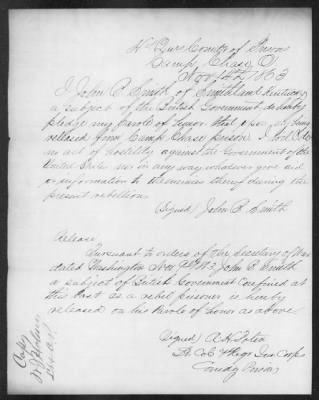 Hd Qurs Comdr of Prison
Camp Chase, O
Nov 14th, 1863
I John P. Smith of Smithland Kentucky
a subject of the British Government do hereby
pledge my Parole of honor that upon my being
released from Camp Chase prison I will do
no act of hostility against the Government of the
United States nor in any way whatever give aid
or information to the enemies thereof during the
present rebellion
(Signed) John P. Smith
Release
Pursuant to orders of the Secretary of War
dated Washington Nov 9th /63 John P. Smith
a subject of British Government confined at
this Post as a rebel prisoner is hereby
released on his Parole of honor as above.
Signed A. H. Poten
Lt Col Inv Corps
Comdg Prison
Copy